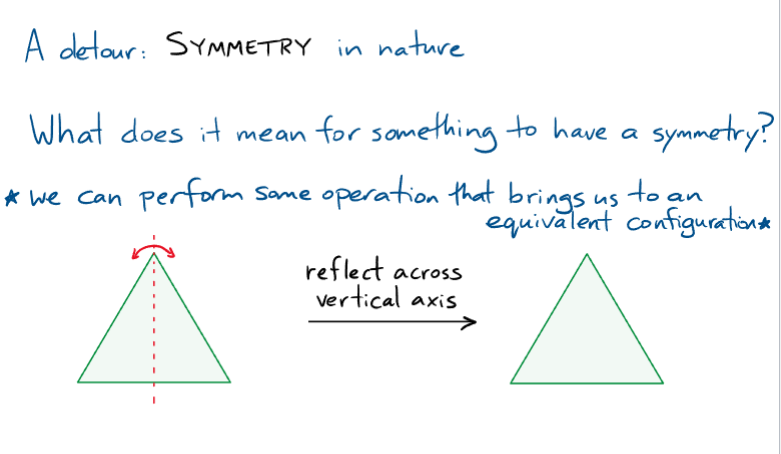 A detour: SYMMETRY in nature
What does it mean for something to have a symmetry?
* we can perform some operation that brings us to an
equivalent configuration*
reflect across
vertical axis